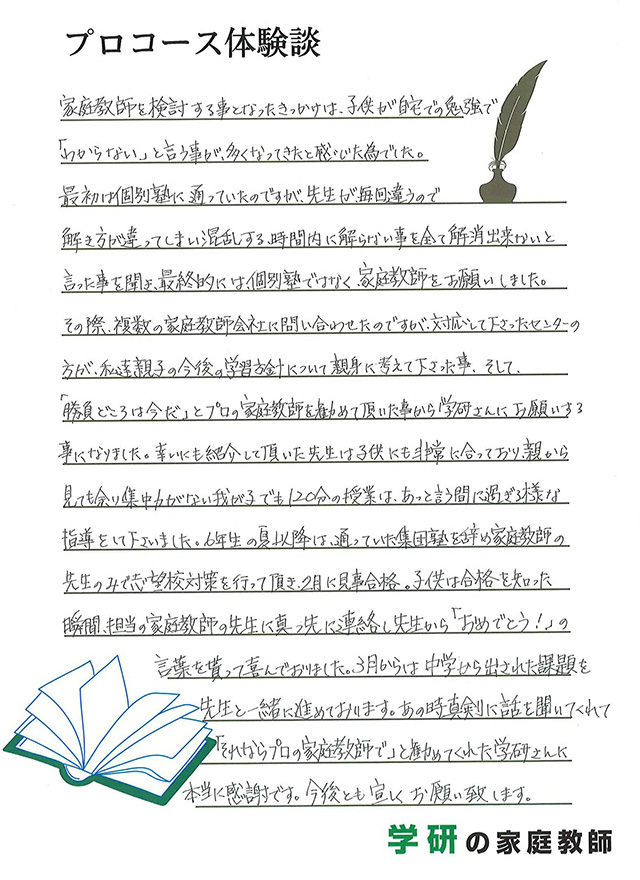 プロコース体験談
家庭教師を検討する事となったきっかけは、子供が自宅での勉強で
「わからない」と言う事が、多くなってきたと感じた為でした。
最初は個別塾に通っていたのですが、先生が毎回違うので
解き方が違ってしまい混乱する、時間内に解らない事を全て解消出来ないと
言った事を聞き、最終的には個別塾ではなく、家庭教師をお願いしました。
その際、複数の家庭教師会社に問い合わせたのですが、対応して下さったセンターの
方が、私達親子の今後の学習方針について親身に考えて下さった事、そして、
「勝負どころは今だ」とプロの家庭教師を勧めて頂いた事から学研さんにお願いする
事になりました。幸いにも紹介して頂いた先生は子供にも非常に合っており、親から
見ても余り集中力がない我が子でも120分の授業は、あっと言う間に過ぎる様な
指導をして下さいました。6年生の夏以降は、通っていた集団塾を辞め家庭教師の
先生のみで志望校対策を行って頂き、2月に見事合格。子供は合格を知った
瞬間、担当の家庭教師の先生に真っ先に連絡し先生から「おめでとう！」の
言葉を貰って喜んでおりました。3月からは中学から出された課題を
先生と一緒に進めております。あの時真剣に話を聞いてくれて
「それならプロの家庭教師で」と勧めてくれた学研さんに
本当に感謝です。今後とも宜しくお願い致します。
学研の家庭教師